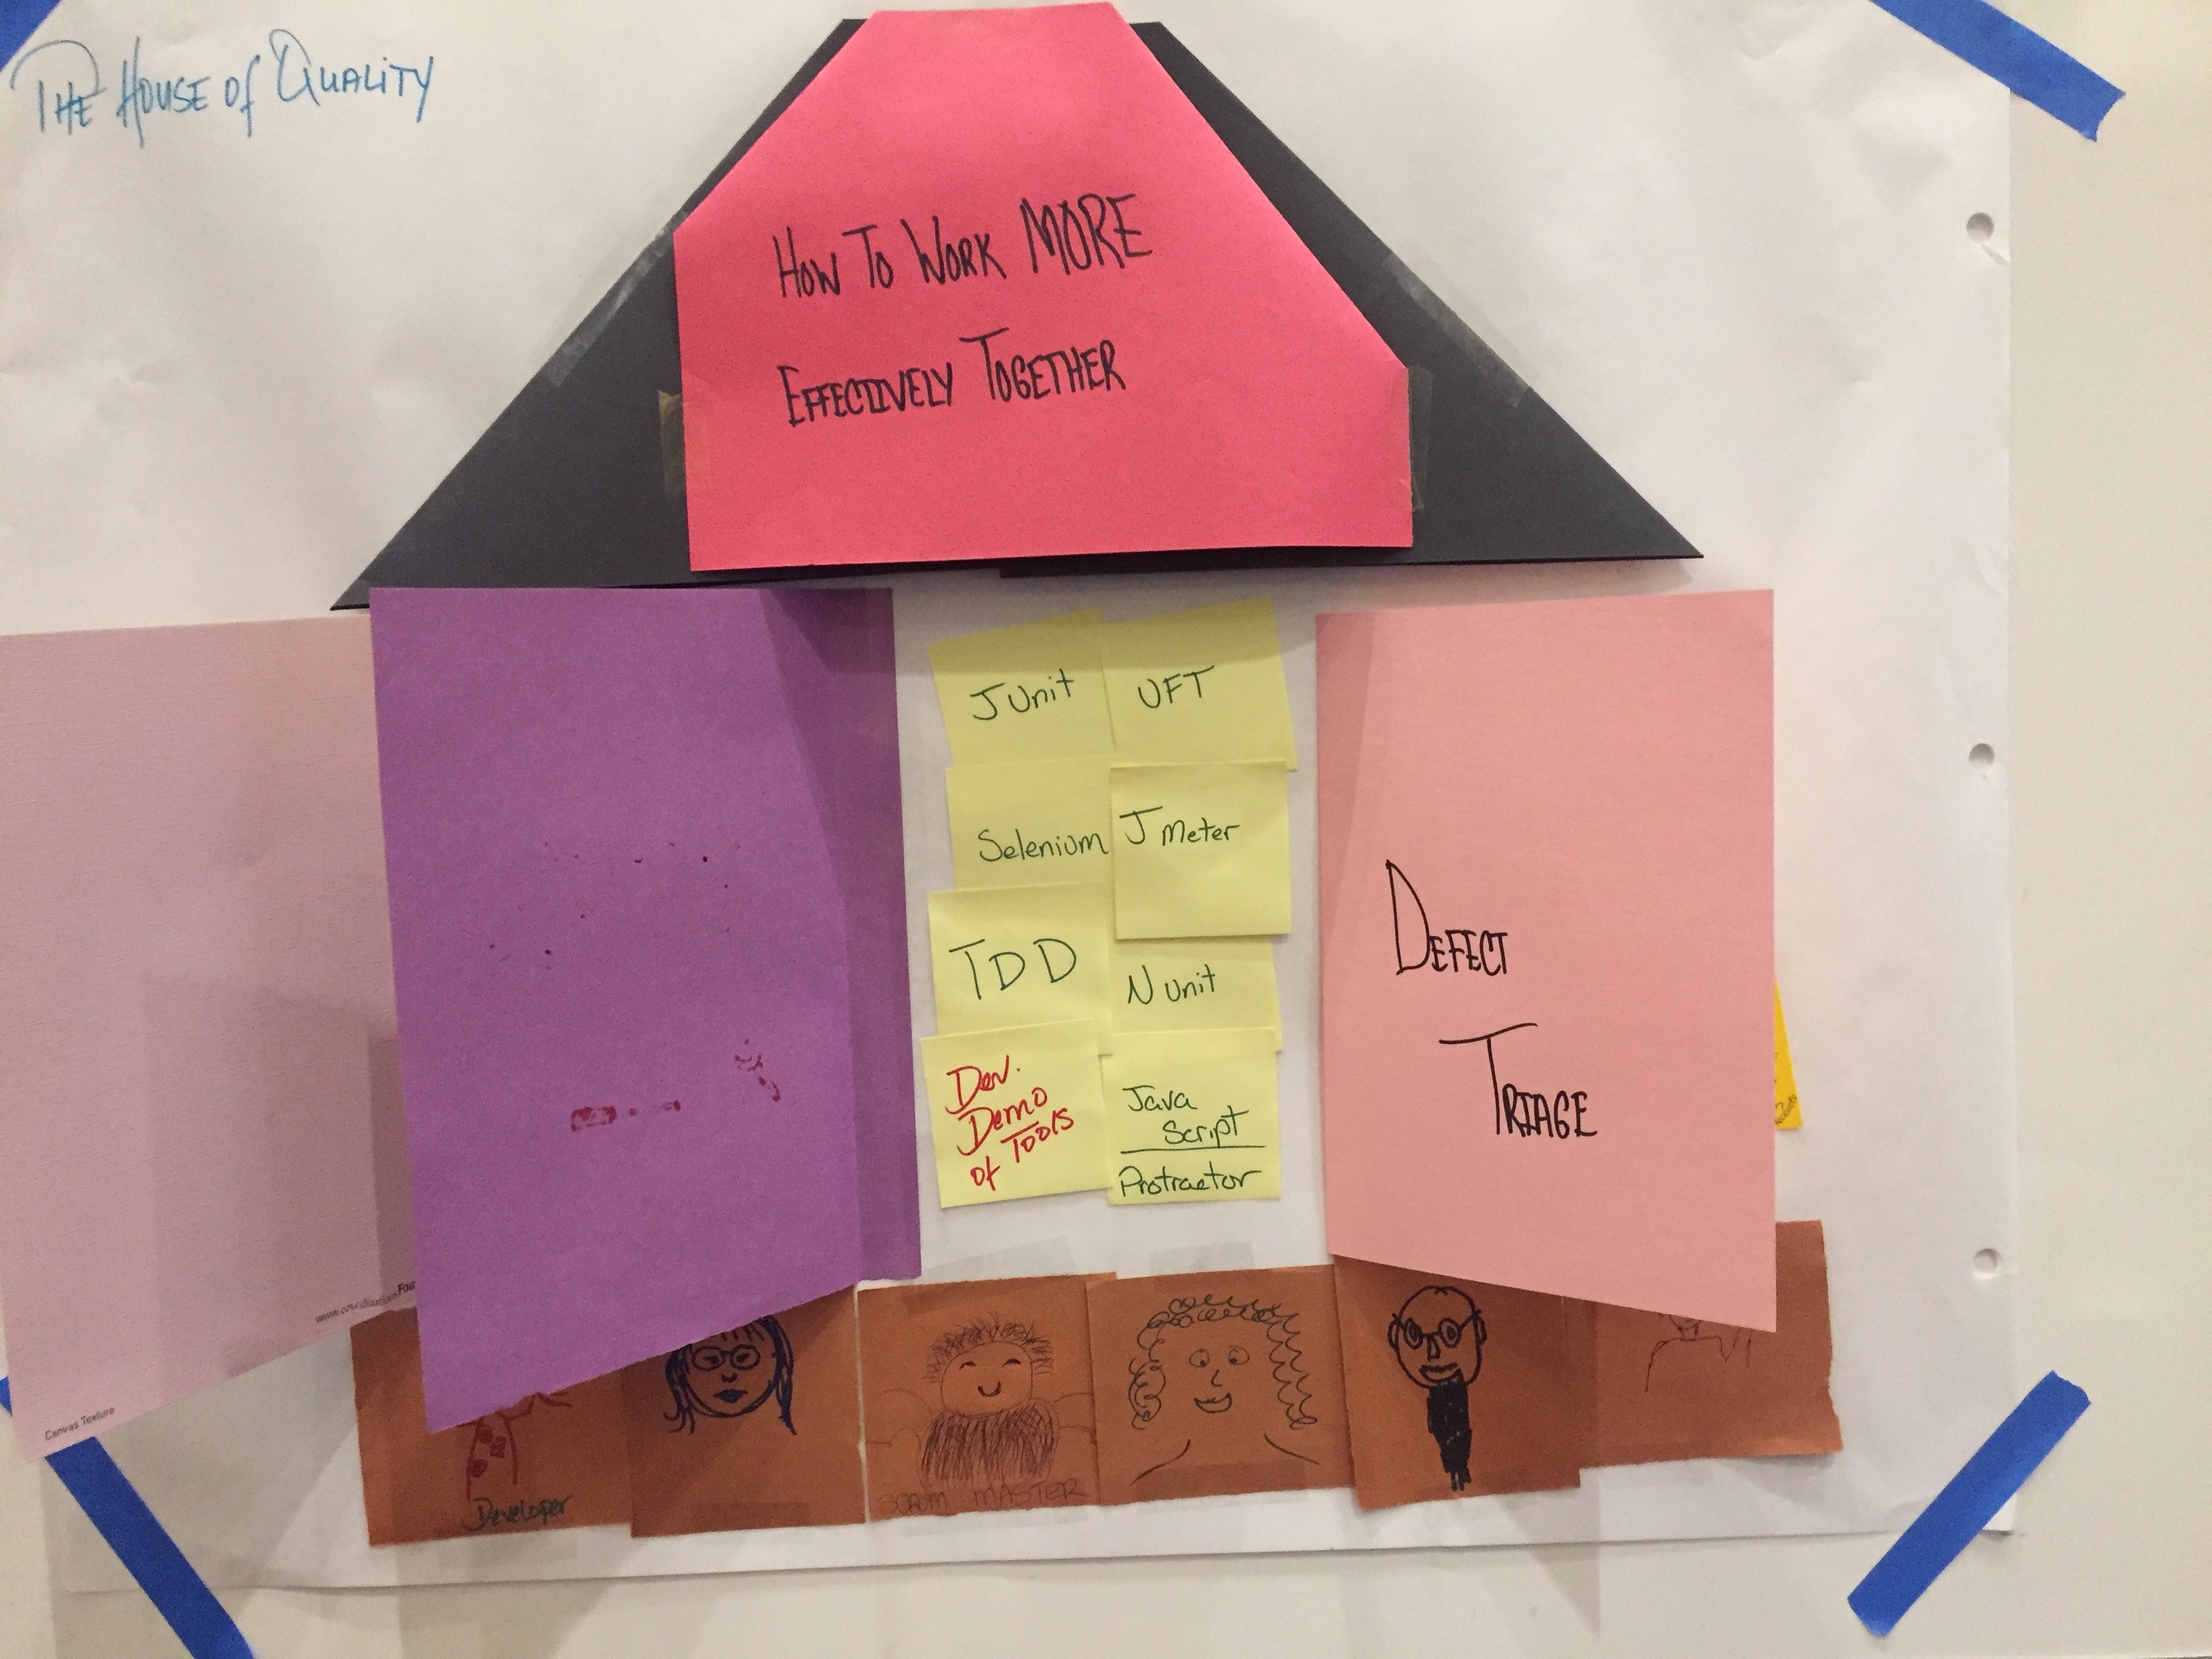 THE HOUSE of QUALITY
HOW TO WORK MORE
EFFECTIVELY TOGETHER
JUnit
UFT
Selenium
J Meter
TDD
N Unit
Dev.
Demo
of Tools
Java
Script
Protractor
DEFECT
TRIAGE
Canvas Texture
Developer
SCRUM MASTER